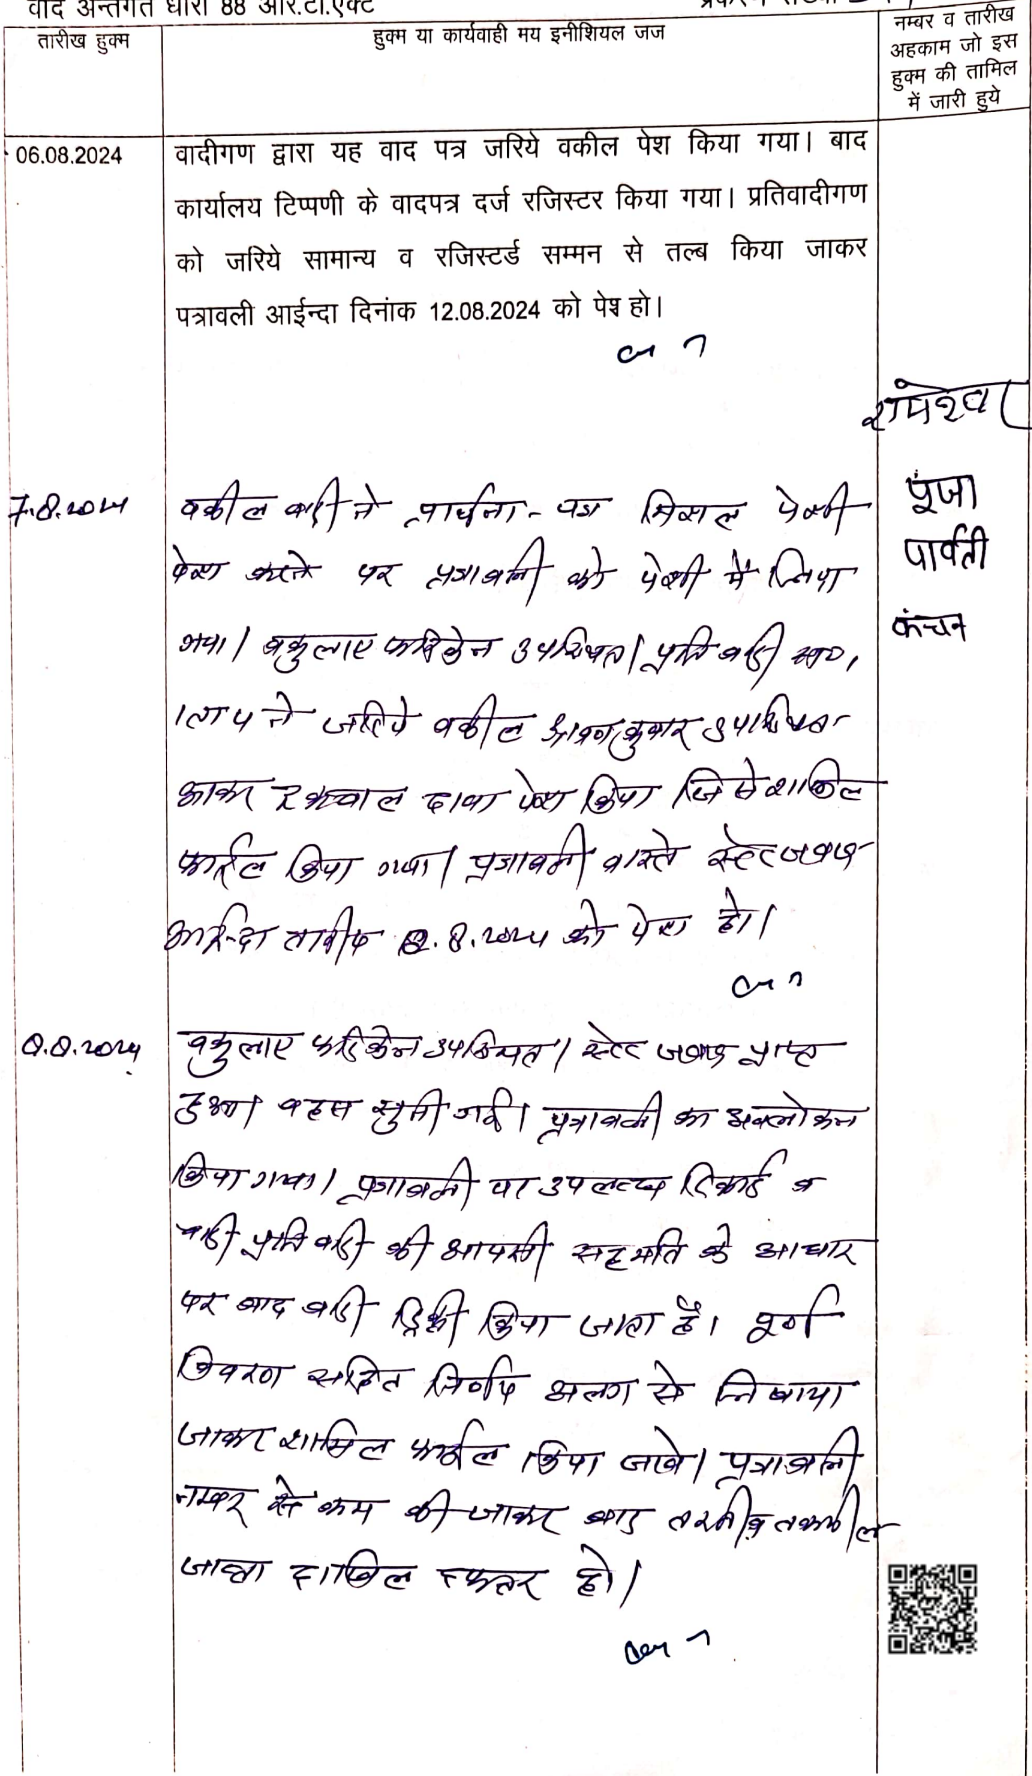 वाद अन्तर्गत धारा 88 आर.टी.एक्ट
तारीख हुक्म
हुक्म या कार्यवाही मय इनीशियल जज
नम्बर व तारीख
अहकाम जो इस
हुक्म की तामिल
में जारी हुये
06.08.2024
वादीगण द्वारा यह वाद पत्र जरिये वकील पेश किया गया। बाद
कार्यालय टिप्पणी के वादपत्र दर्ज रजिस्टर किया गया। प्रतिवादीगण
को जरिये सामान्य व रजिस्टर्ड सम्मन से तल्ब किया जाकर
पत्रावली आईन्दा दिनांक 12.08.2024 को पेश हो।
रामेश्वर
पूजा
पार्वती
कंचन
7.8.2024
वकील वादी ने प्रार्थना-पत्र मिसल पेशी
पेश करने पर पत्रावली को पेशी में लिया
गया। वकुलाए फरिकेन उपस्थित। प्रतिवादी सं०
1 ता 4 ने जरिये वकील श्रवण कुमार उपस्थित
आकर इकबाल दावा पेश किया जिसे शामिल
फाईल किया गया। पत्रावली वास्ते स्टेट जवाब
आईन्दा तारीख 8.8.2024 को पेश हो।
8.8.2024
वकुलाए फरिकेन उपस्थित। स्टेट जवाब प्राप्त
हुआ। बहस सुनी गई। पत्रावली का अवलोकन
किया गया। पत्रावली पर उपलब्ध रिकार्ड व
वादी प्रतिवादी की आपसी सहमति के आधार
पर वाद वादी डिक्री किया जाता है। पूर्ण
विवरण सहित निर्णय अलग से लिखाया
जाकर शामिल फाईल किया जावे। पत्रावली
नम्बर से कम की जाकर बाद तरतीब तकमील
जाब्ता दाखिल दफ्तर हो।